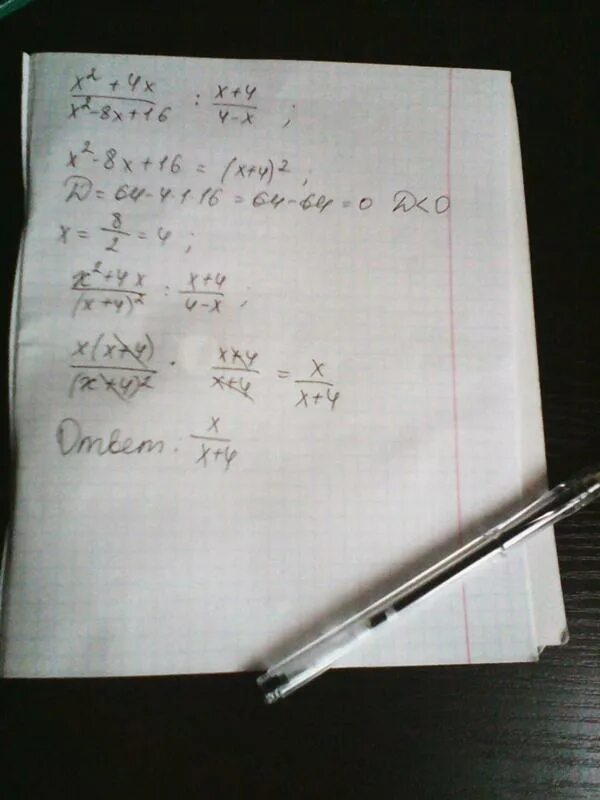 (x² + 4x)/(x² - 8x + 16) : (x+4)/(4-x) ;
x² - 8x + 16 = (x+4)² ;
D = 64 - 4·1·16 = 64 - 64 = 0 D < 0
x = 8/2 = 4 ;
(x² + 4x)/(x+4)² : (x+4)/(4-x) ;
x(x+4)/(x+4)² · (x+4)/(x+4) = x/(x+4)
Ответ: x/(x+4)